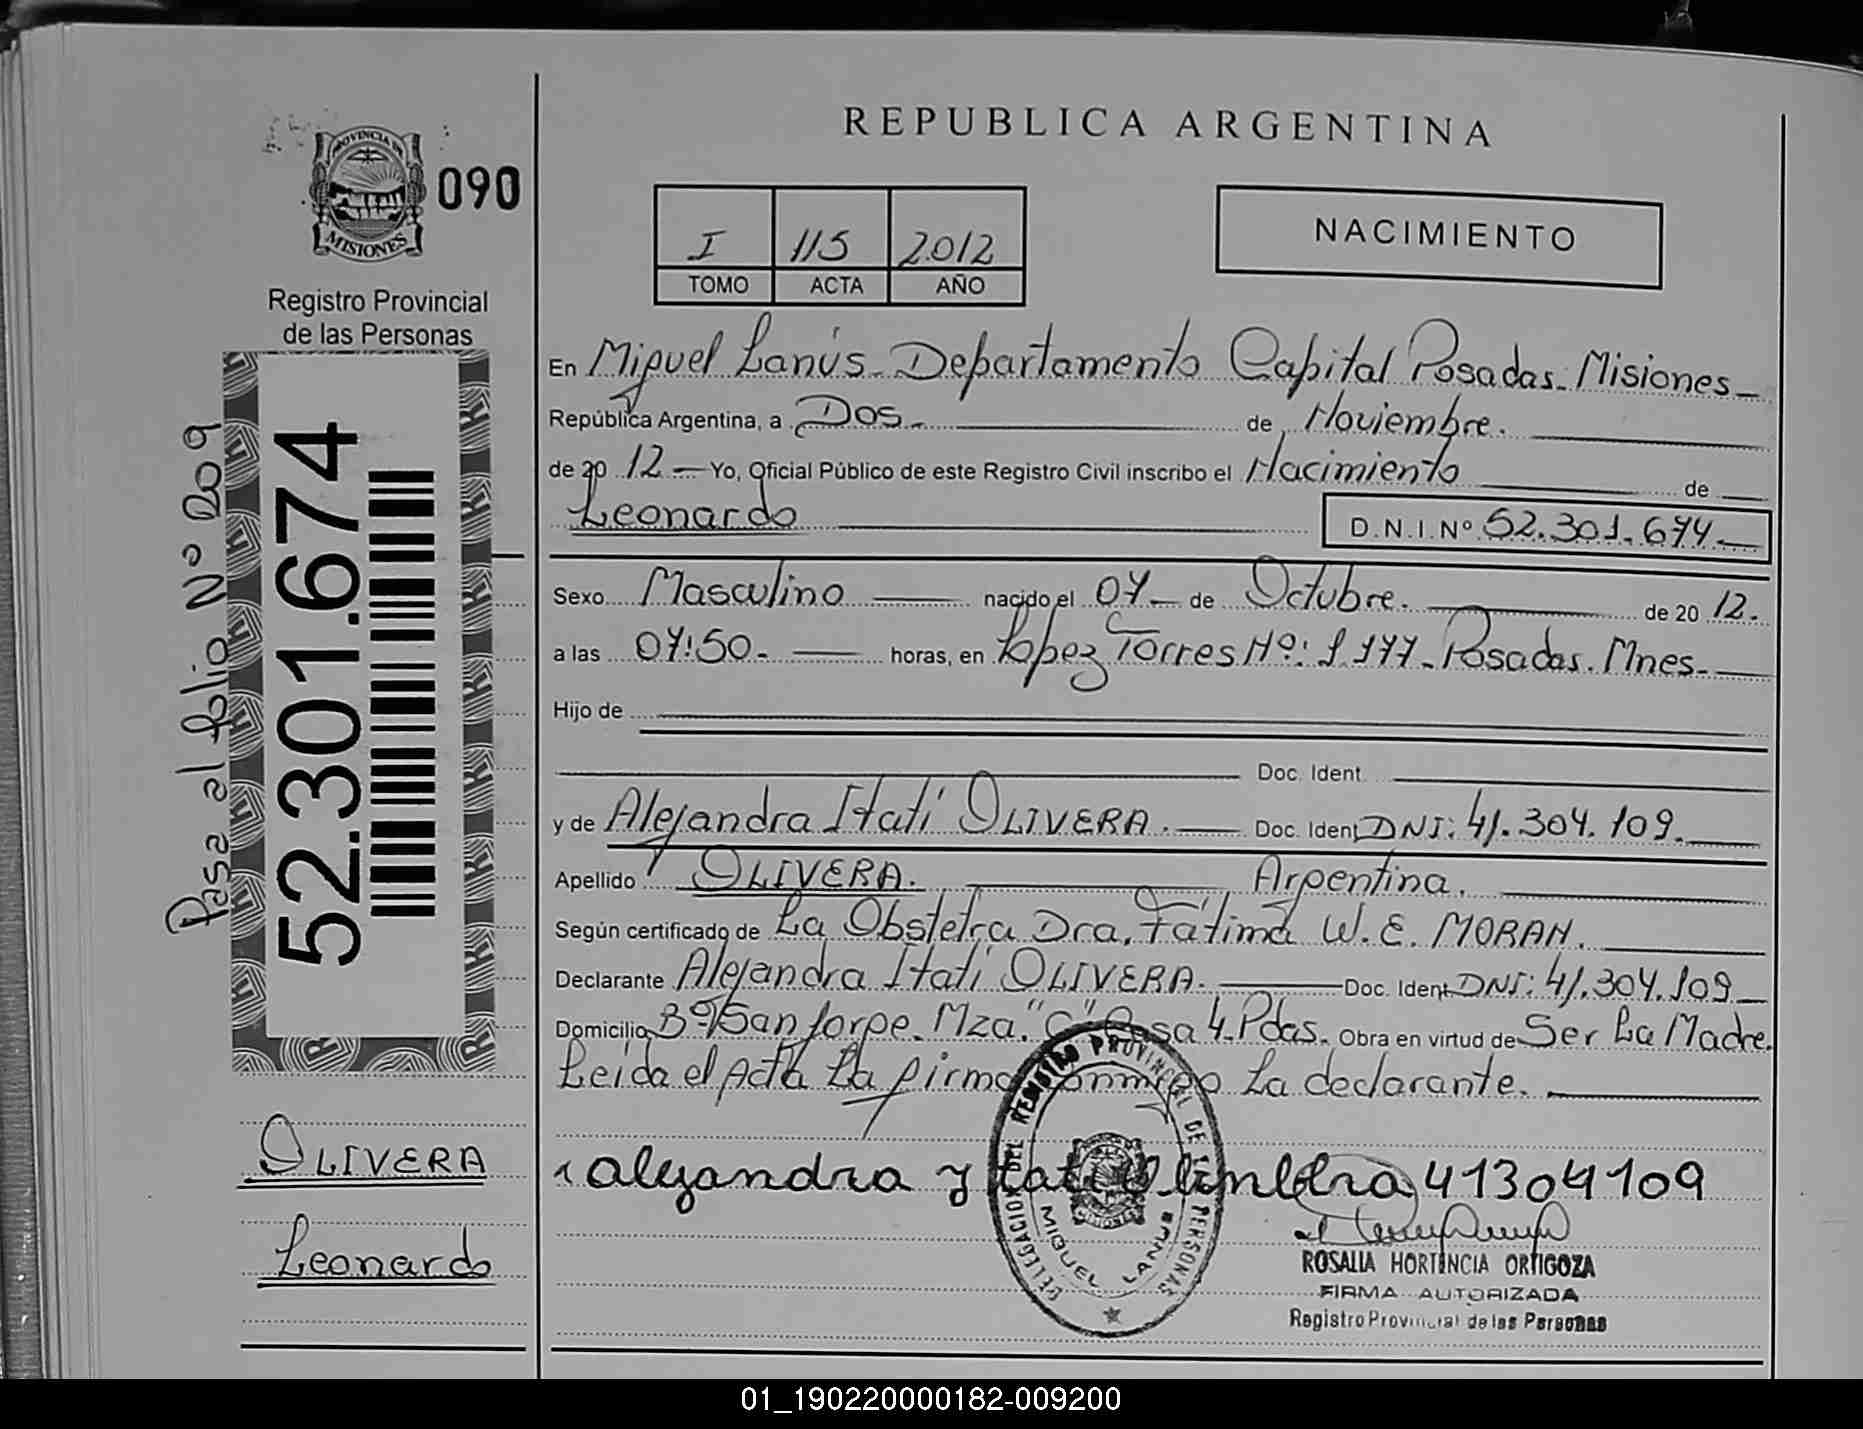 REPUBLICA ARGENTINA
PROVINCIA DE
MISIONES
090
Registro Provincial
de las Personas
I 115 2012
TOMO ACTA AÑO
NACIMIENTO
En Miguel Lanús. Departamento Capital Posadas. Misiones
República Argentina, a Dos. de Noviembre.
de 20 12 Yo, Oficial Público de este Registro Civil inscribo el Nacimiento de
Leonardo D.N.I.Nº 52.301.674
Sexo Masculino nacido el 07 de Octubre. de 20 12.
a las 07:50. horas, en López Torres Nº: 1.177. Posadas. Mnes.
Hijo de
Doc. Ident.
y de Alejandra Itatí OLIVERA. Doc. Ident DNI: 41.304.109.
Apellido OLIVERA. Argentina.
Según certificado de La Obstetra Dra. Fátima W. E. MORAN.
Declarante Alejandra Itatí OLIVERA. Doc. Ident DNI: 41.304.109
Domicilio Bº San Jorge. Mza. "C" Casa 4. Pdas. Obra en virtud de Ser La Madre.
Leída el Acta La firma conmigo La declarante.
alejandra ytati 41304109
DELEGACION DEL REGISTRO PROVINCIAL DE LAS PERSONAS
MIGUEL LANUS
ROSALIA HORTENCIA ORTIGOZA
FIRMA AUTORIZADA
Registro Provincial de las Personas
Pasa al folio Nº 209
52.301.674
OLIVERA
Leonardo
01_190220000182-009200